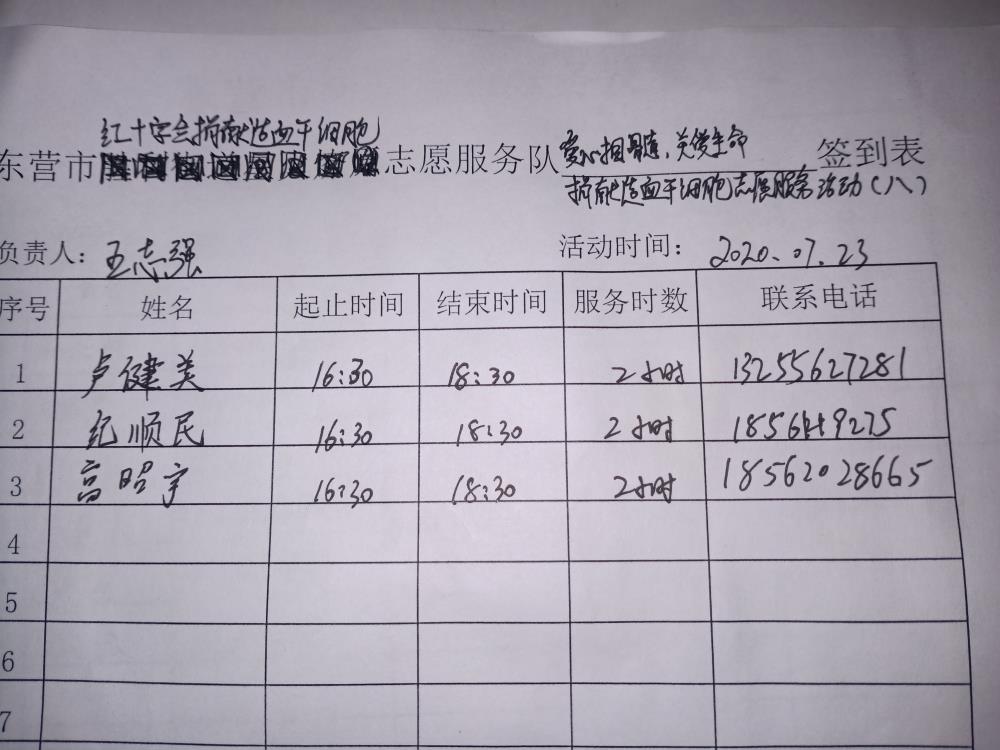 红十字会捐献造血干细胞
东营市 志愿服务队 爱心捐骨髓、关爱生命 签到表
捐献造血干细胞志愿服务活动(八)
负责人: 王志强 活动时间: 2020.07.23
序号 姓名 起止时间 结束时间 服务时数 联系电话
1 卢健美 16:30 18:30 2小时 13255627281
2 纪顺民 16:30 18:30 2小时
3 高昭宇 16:30 18:30 2小时 18562028665
4
5
6
7